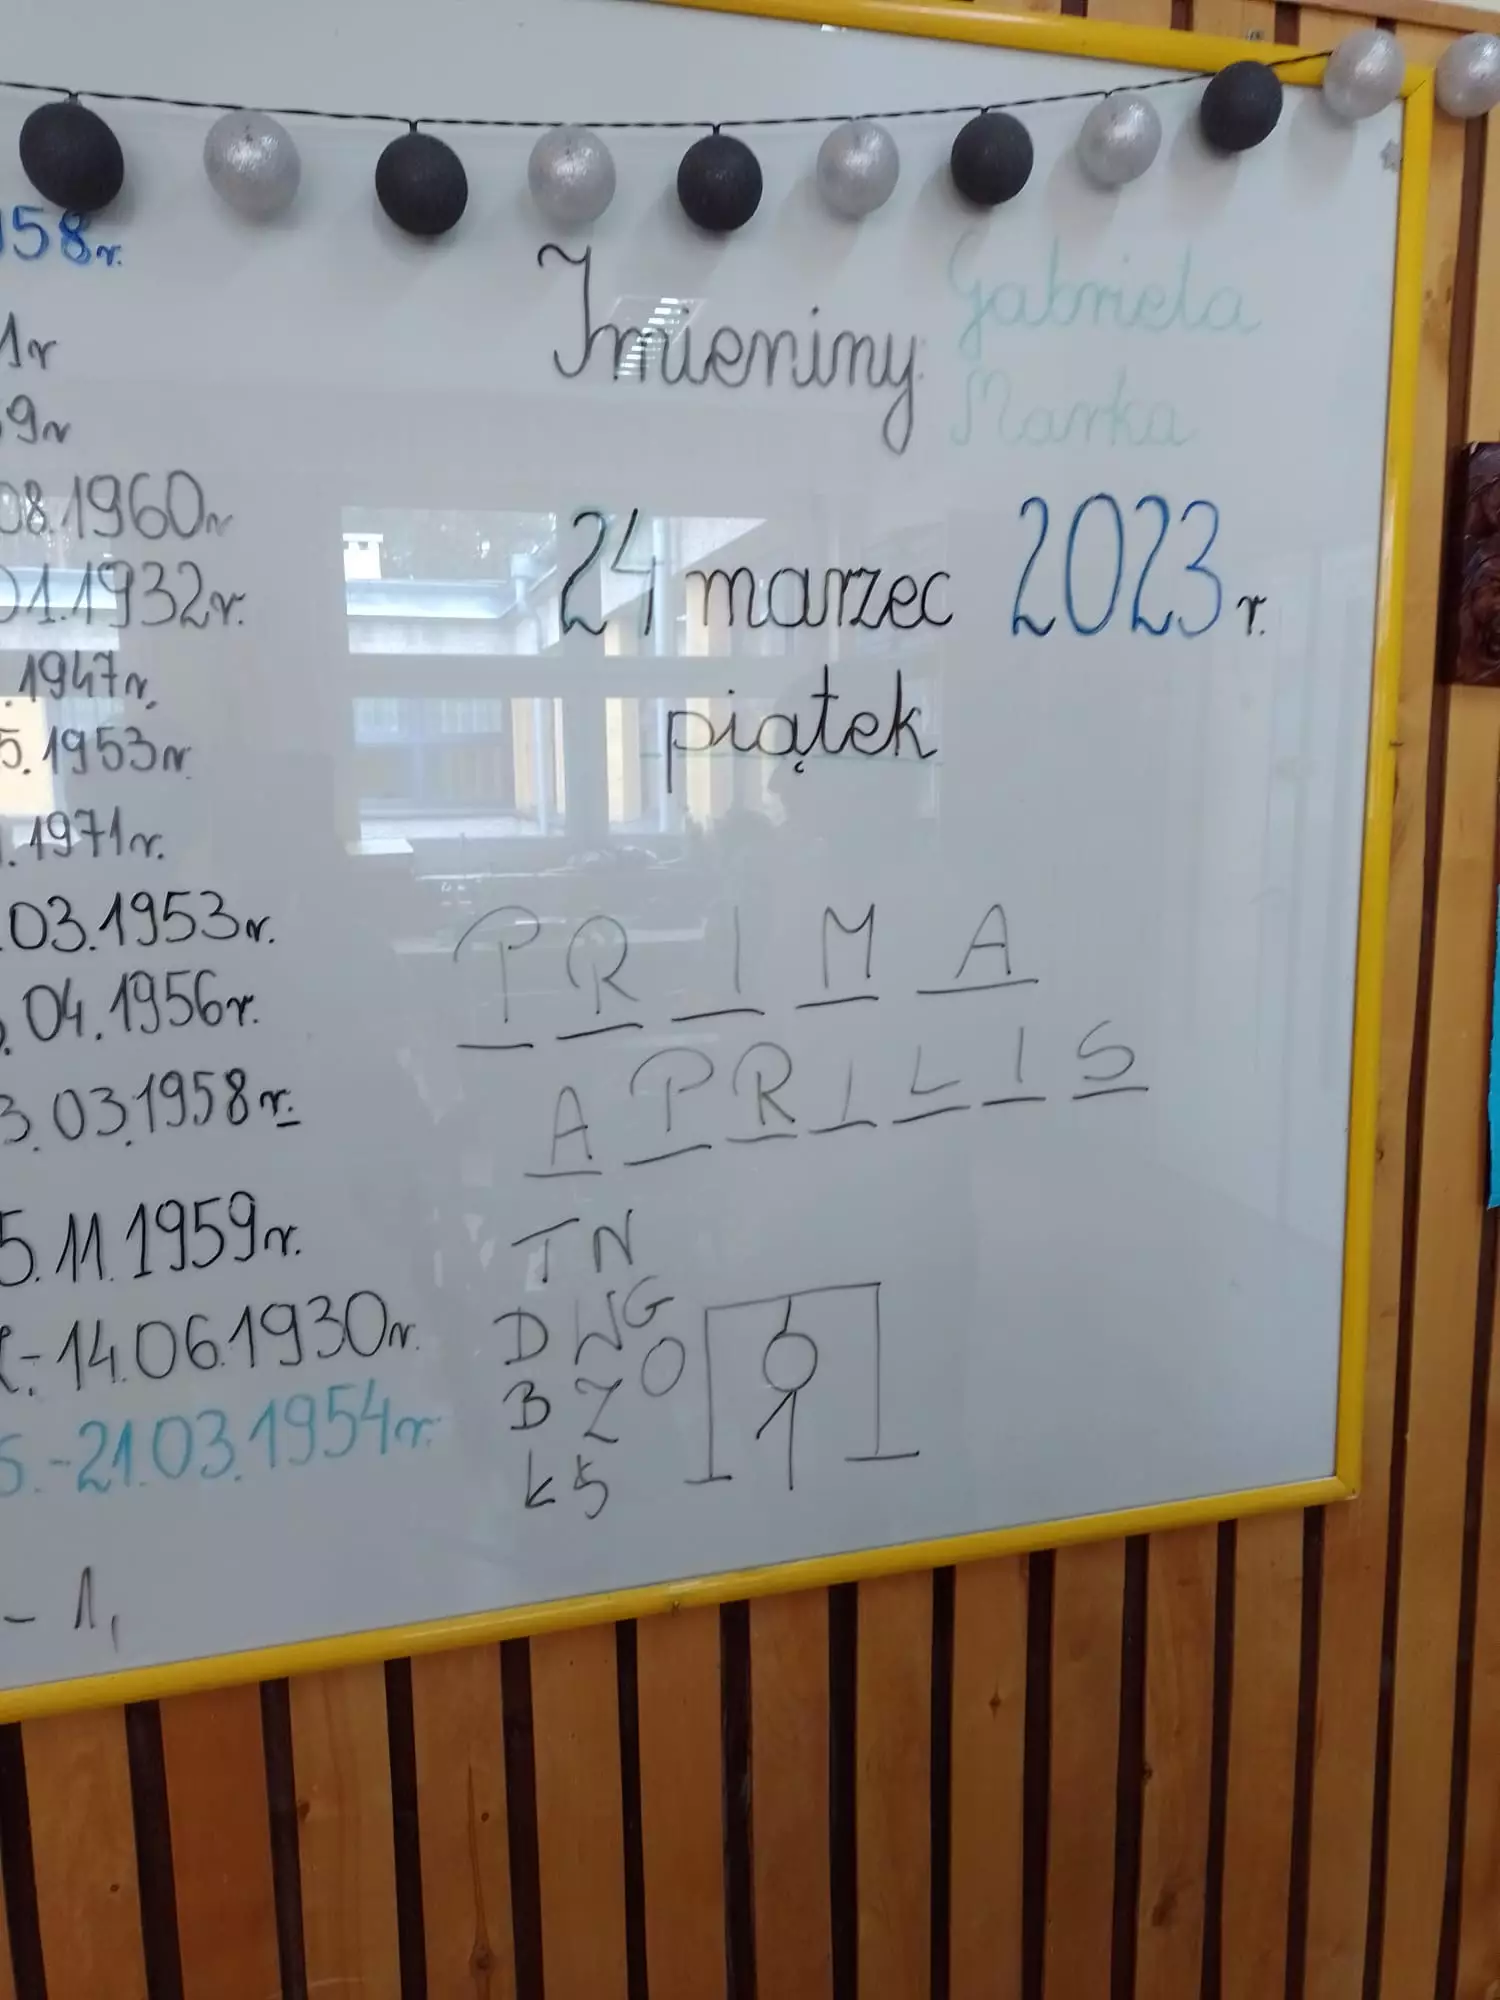 58r.
1r
9r
08.1960r
01.1932r.
.1947r.
5.1953r
.1971r.
.03.1953r.
.04.1956r.
3.03.1958r.
5.11.1959r.
.-14.06.1930r.
S.-21.03.1954r.
- 1,
Imieniny Gabriela
Marka
24 marzec 2023 r.
piątek
P R I M A
A P R I L I S
T N
D W G
B Z O
K